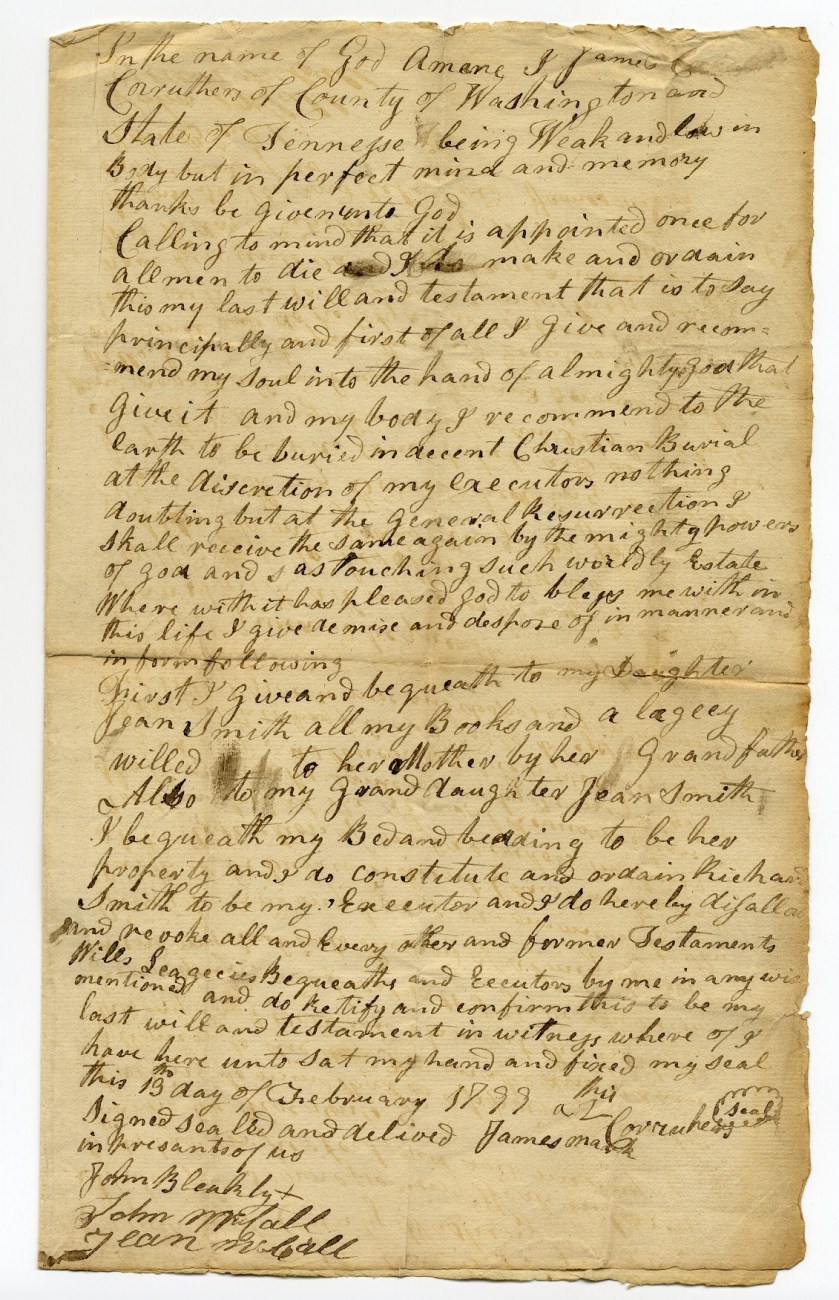 In the name of God Amene I James
Corruthers of County of Washington and
State of Tennesse being Weak and low in
Body but in perfect mind and memory
thanks be given unto God
Calling to mind that it is appointed once for
all men to die and I do make and ordain
this my last will and testament that is to say
principally and first of all I Give and recom=
=mend my soul into the hand of almighty god that
Give it and my body I recommend to the
Earth to be buried in decent Christian Burial
at the discretion of my Executors nothing
doubting but at the General Resurrection I
Shall receive the same again by the mighty powers
of god and as touching such worldly Estate
Where with it has pleased god to bless me with in
this life I give demise and despose of in manner and
in form following
First I Give and bequeath to my Daughter
Jean Smith all my Books and a legecy
willed to her Mother by her Grandfather
Also to my Grand daughter Jean Smith
I bequeath my Bed and bedding to be her
property and I do constitute and ordain Richard
Smith to be my Executor and I do hereby disallow
and revoke all and Every other and former Testaments
Wills Leagecies Bequeaths and Eecutors by me in any wis
mentioned and do Retify and confirm this to be my
last will and testament in witness where of I
have here unto sat my hand and fixed my seal
this 13th day of February 1799 his
Signed sealed and delived James mark Corruthers Seal
in presants of us
John Bleakly +
John McCall
Jean McCall